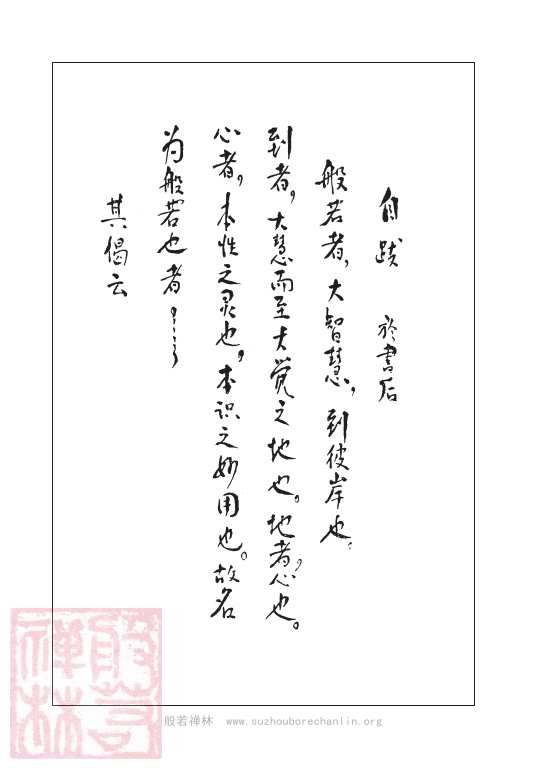 自跋 於書后
般若者，大智慧，到彼岸也。
到者，大慧而至大覺之地也。地者，心也。
心者，本性之灵也，本识之妙用也。故名
为般若也者……，
其偈云
般若禅林
般若禅林 www.suzhouborechanlin.org